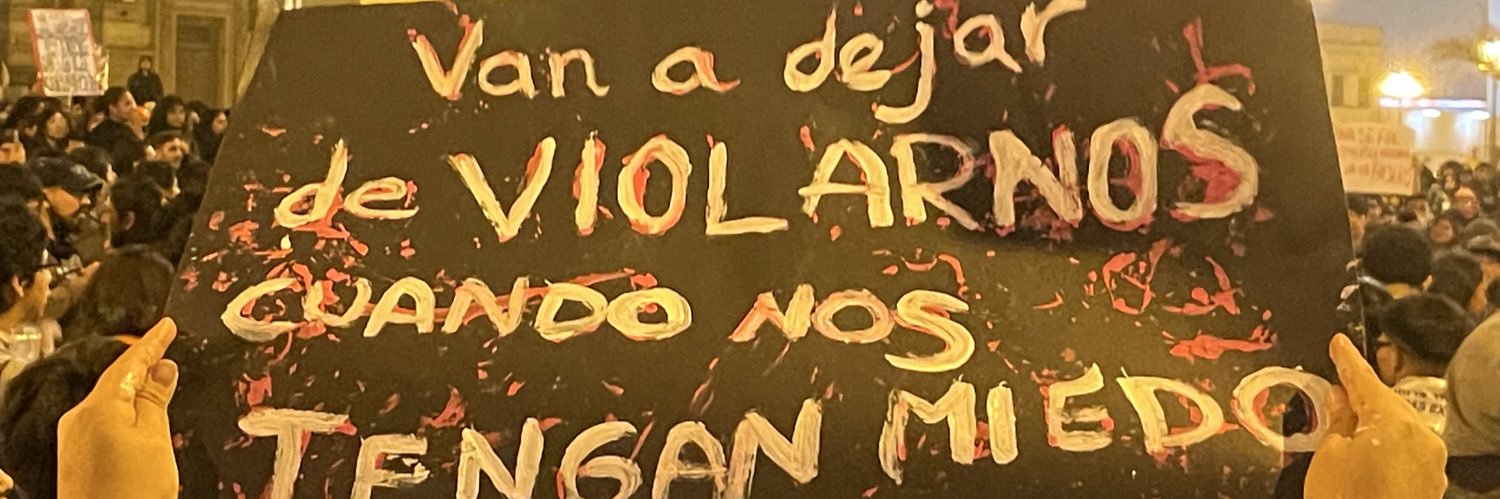 Van a dejar
de VIOLARNOS
CUANDO NOS
TENGAN MIEDO